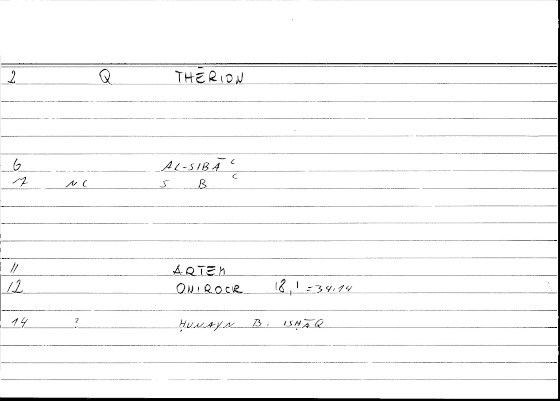 2 Q THĒRION
6 AL-SIBĀʿ
7 NC S B ʿ
11 ARTEM
12 ONIROCR 18,1 = 34.14
14 ? ḤUNAYN B. ISḤĀQ